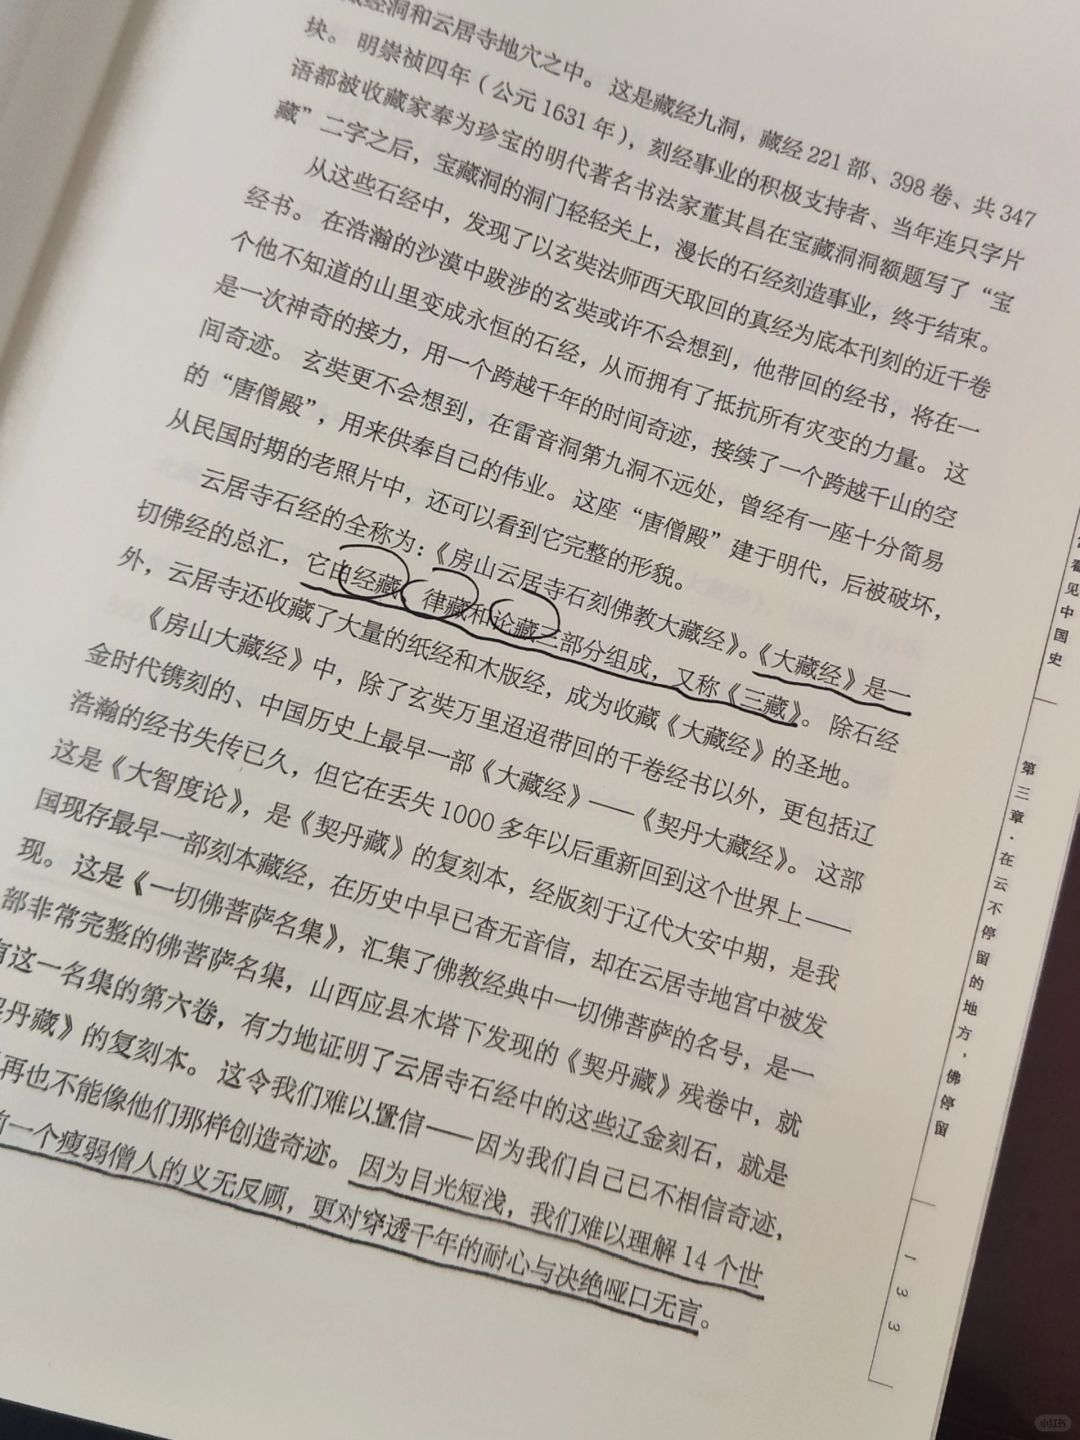 藏经洞和云居寺地穴之中。这是藏经九洞，藏经221部、398卷、共347
块。明崇祯四年（公元1631年），刻经事业的积极支持者、当年连只字片
语都被收藏家奉为珍宝的明代著名书法家董其昌在宝藏洞洞额题写了“宝
藏”二字之后，宝藏洞的洞门轻轻关上，漫长的石经刻造事业，终于结束。
从这些石经中，发现了以玄奘法师西天取回的真经为底本刊刻的近千卷
经书。在浩瀚的沙漠中跋涉的玄奘或许不会想到，他带回的经书，将在一
个他不知道的山里变成永恒的石经，从而拥有了抵抗所有灾变的力量。这
是一次神奇的接力，用一个跨越千年的时间奇迹，接续了一个跨越千山的空
间奇迹。玄奘更不会想到，在雷音洞第九洞不远处，曾经有一座十分简易
的“唐僧殿”，用来供奉自己的伟业。这座“唐僧殿”建于明代，后被破坏，
从民国时期的老照片中，还可以看到它完整的形貌。
云居寺石经的全称为：《房山云居寺石刻佛教大藏经》。《大藏经》是一
切佛经的总汇，它由经藏、律藏和论藏三部分组成，又称《三藏》。除石经
外，云居寺还收藏了大量的纸经和木版经，成为收藏《大藏经》的圣地。
《房山大藏经》中，除了玄奘万里迢迢带回的千卷经书以外，更包括辽
金时代镌刻的、中国历史上最早一部《大藏经》——《契丹大藏经》。这部
浩瀚的经书失传已久，但它在丢失1000多年以后重新回到这个世界上——
这是《大智度论》，是《契丹藏》的复刻本，经版刻于辽代大安中期，是我
国现存最早一部刻本藏经，在历史中早已杳无音信，却在云居寺地宫中被发
现。这是《一切佛菩萨名集》，汇集了佛教经典中一切佛菩萨的名号，是一
部非常完整的佛菩萨名集，山西应县木塔下发现的《契丹藏》残卷中，就
有这一名集的第六卷，有力地证明了云居寺石经中的这些辽金刻石，就是
契丹藏》的复刻本。这令我们难以置信——因为我们自己已不相信奇迹，
再也不能像他们那样创造奇迹。因为目光短浅，我们难以理解14个世
一个瘦弱僧人的义无反顾，更对穿透千年的耐心与决绝哑口无言。
看见中国史
第三章·在云不停留的地方，佛停留
133
小红书